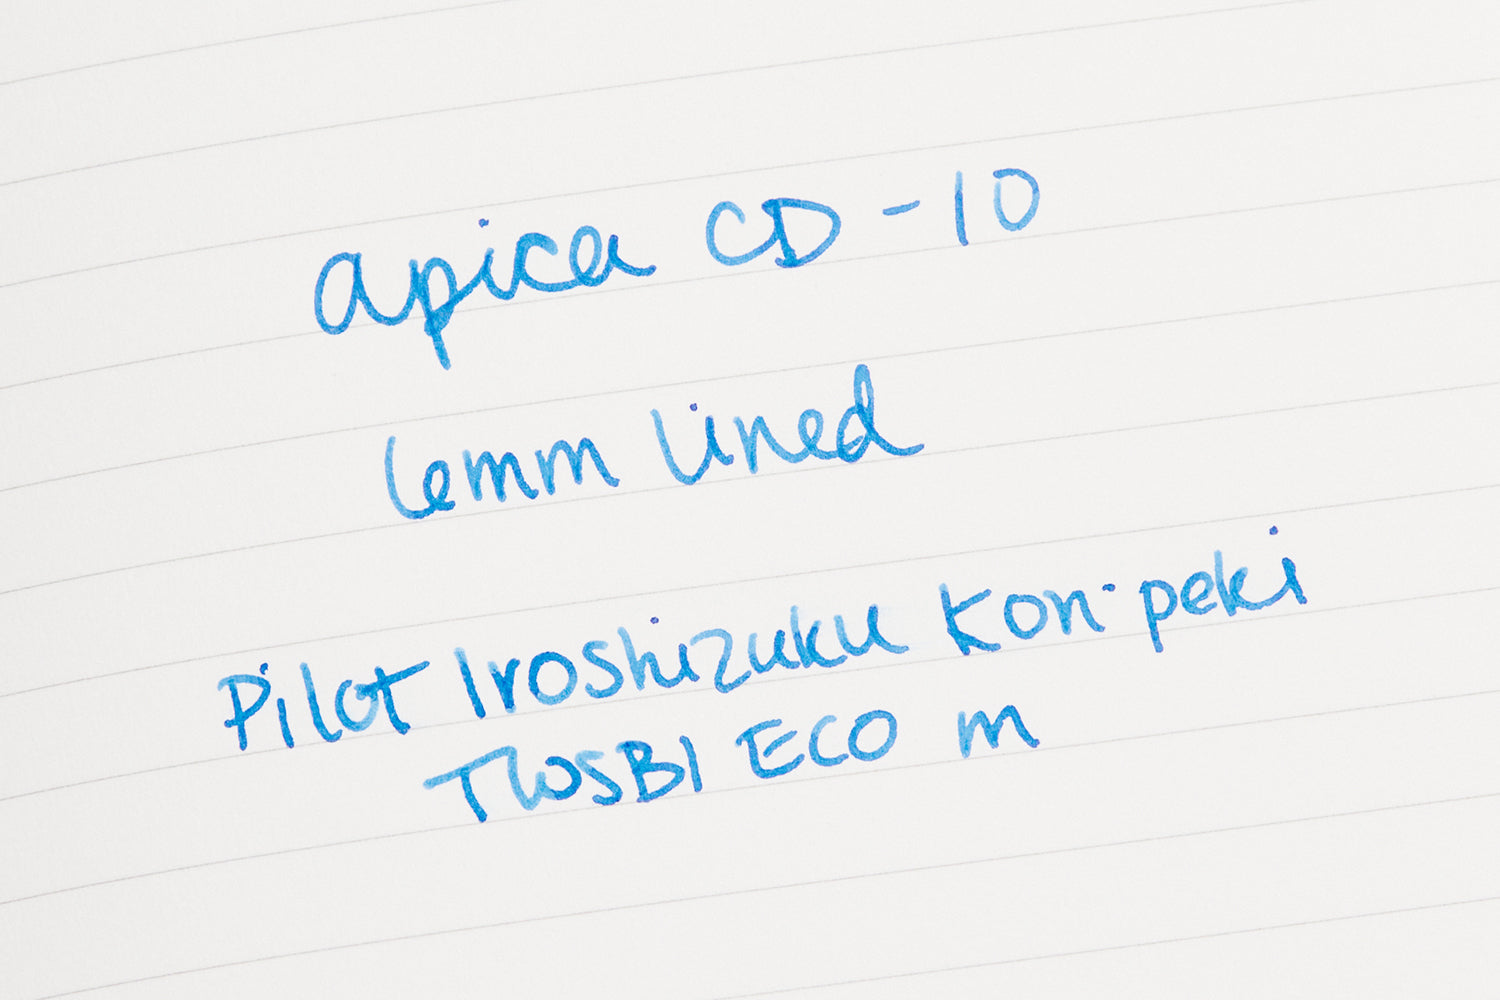 apica CD-10
6mm lined
Pilot Iroshizuku Kon-peki
TWSBI ECO m